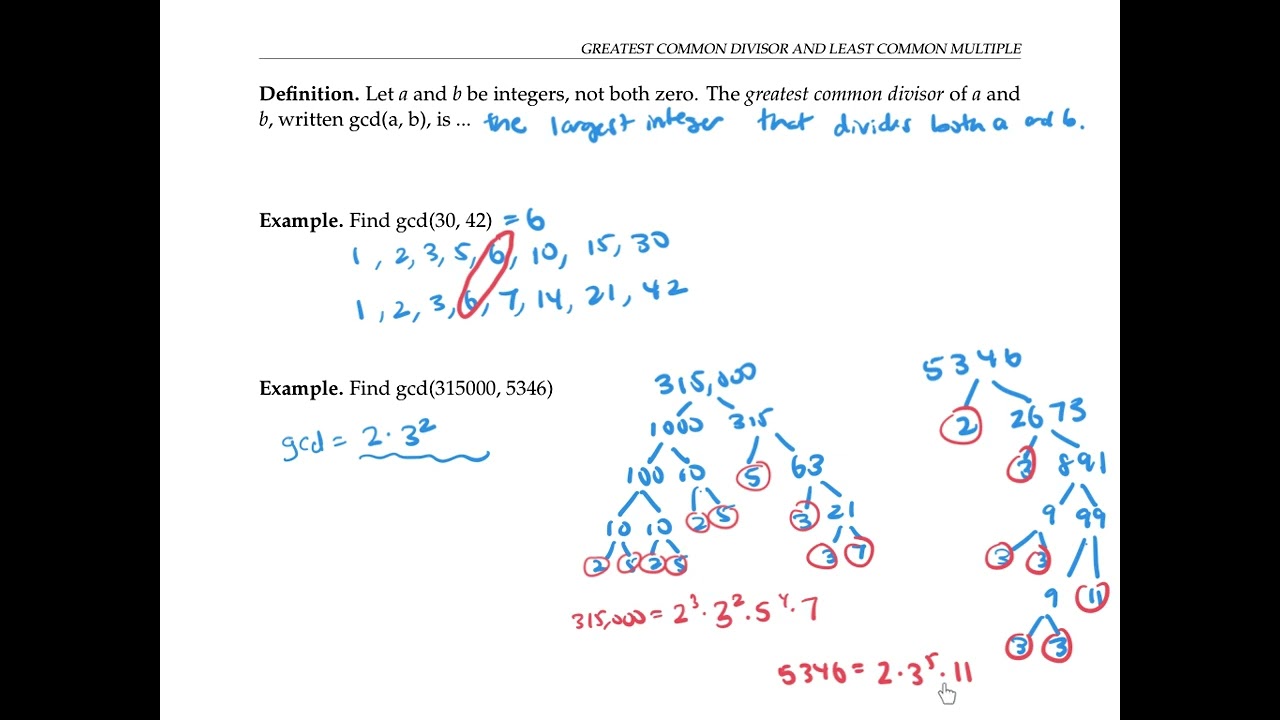 GREATEST COMMON DIVISOR AND LEAST COMMON MULTIPLE
Definition. Let a and b be integers, not both zero. The greatest common divisor of a and
b, written gcd(a, b), is ... the largest integer that divides both a and b.
Example. Find gcd(30, 42) = 6
1, 2, 3, 5, 6, 10, 15, 30
1, 2, 3, 6, 7, 14, 21, 42
Example. Find gcd(315000, 5346)
gcd = 2·3²
315,000
1000 315
100 10 5 63
10 10 2 5 3 21
2 5 2 5 3 7
315,000 = 2³·3²·5⁴·7
5346
2 2673
3 891
9 99
3 3 9 11
3 3
5346 = 2·3⁵·11